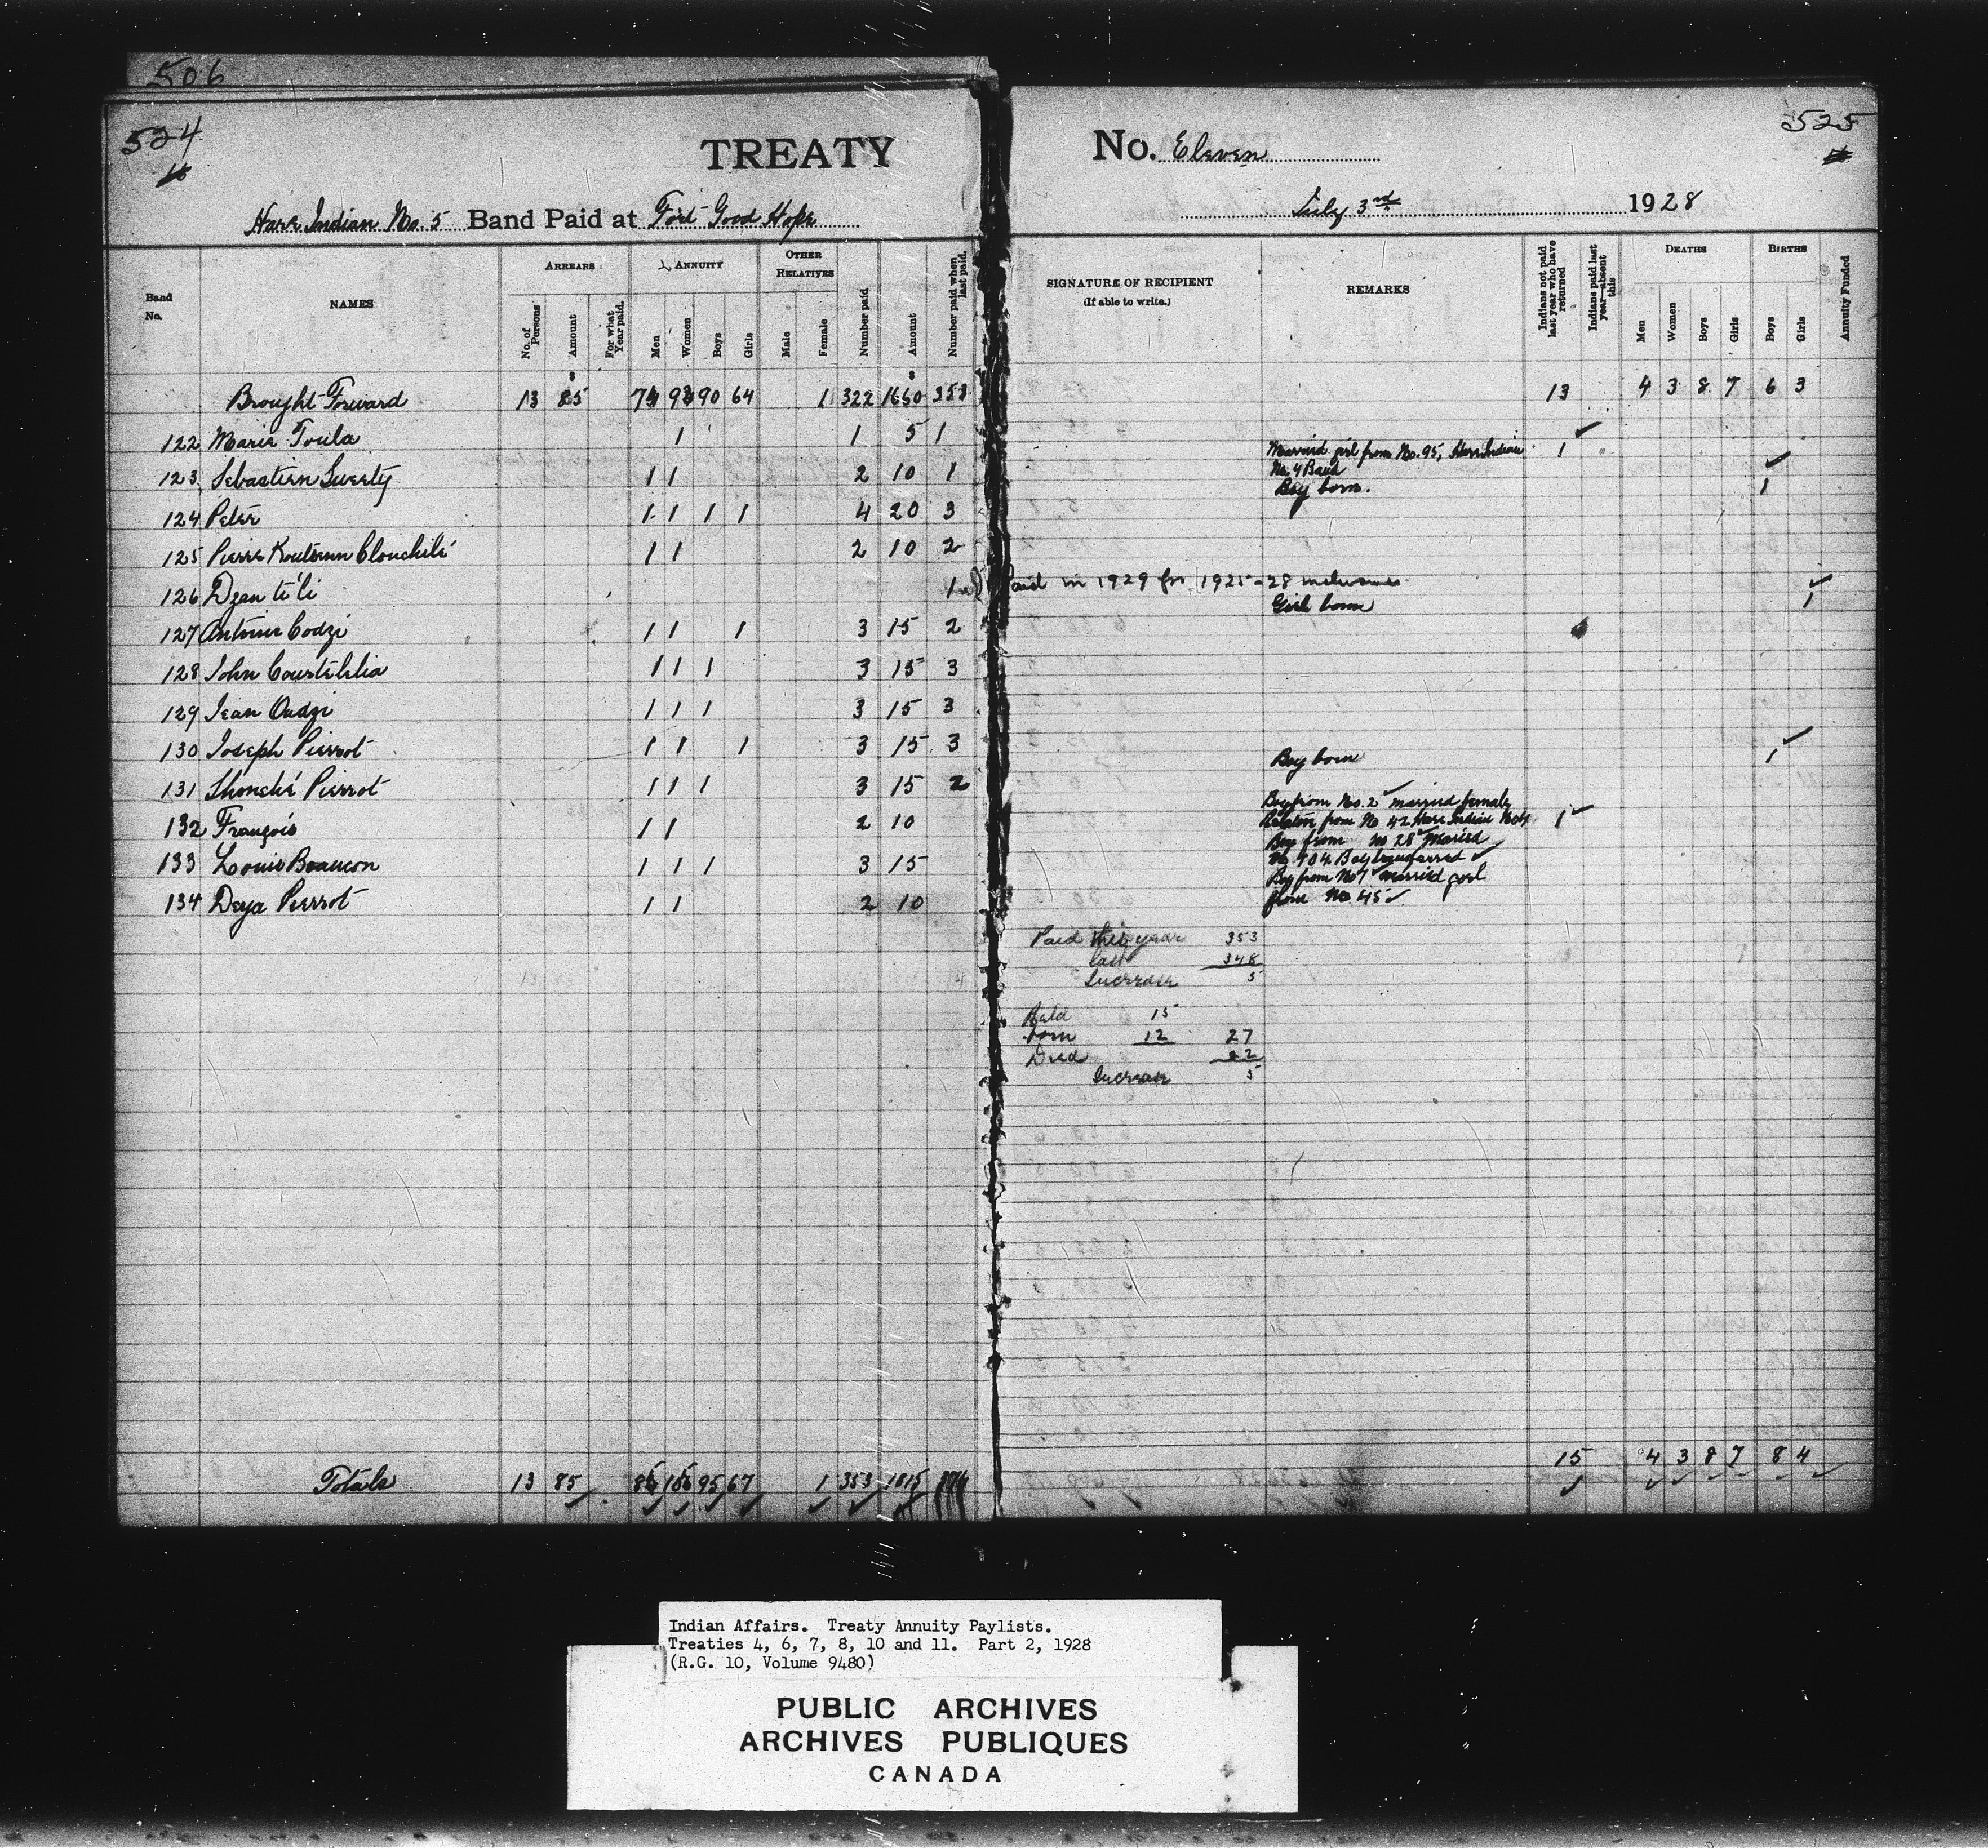 506
524
525
TREATY No. Eleven
Hare Indian No. 5 Band Paid at Fort Good Hope July 3rd 1928
Band No.
NAMES
ARREARS
No. of Persons
Amount
For what Year paid.
ANNUITY
Men
Women
Boys
Girls
OTHER RELATIVES
Male
Female
Number paid
Amount
Number paid when last paid.
SIGNATURE OF RECIPIENT
(If able to write.)
REMARKS
Indians not paid last year who have returned
Indians paid last year—absent this
DEATHS
Men
Women
Boys
Girls
BIRTHS
Boys
Girls
Annuity Funded
Brought Forward 13 85 90 64 1 322 1660 353 13 4 3 8 7 6 3
122 Marie Toula 1 1 5 1
Married girl from No. 95, Hare Indian 1
No. 4 Band
123 Sebastien Sweety 1 1 2 10 1
Boy born. 1
124 Peter 1 1 1 1 4 20 3
125 Pierre Clouchilé 1 1 2 10 2
126 Dzan te'li 1 Paid in 1929 for 1925-28 inclusive
Girl born 1
127 Antoine Codzi 1 1 1 3 15 2
128 John 1 1 1 3 15 3
129 Jean Oudzi 1 1 1 3 15 3
130 Joseph Pierrot 1 1 1 3 15 3
Boy born 1
131 Pierrot 1 1 1 3 15 2
Boy from No. 2 married female
Relative from No 42 Hare Indian No 4 1
132 François 1 1 2 10
Boy from No 28 Married
No 104 Boy transferred
133 Louis Beaucon 1 1 1 3 15
Boy from No 7 married girl
from No. 45
134 Deya Pierrot 1 1 2 10
Paid this year 353
last 348
Increase 5
Add 15
born 12 27
Died 22
Increase 5
Totals 13 85 95 67 1 353 1815 15 4 3 8 7 8 4
Indian Affairs. Treaty Annuity Paylists.
Treaties 4, 6, 7, 8, 10 and 11. Part 2, 1928
(R.G. 10, Volume 9480)
PUBLIC ARCHIVES
ARCHIVES PUBLIQUES
CANADA